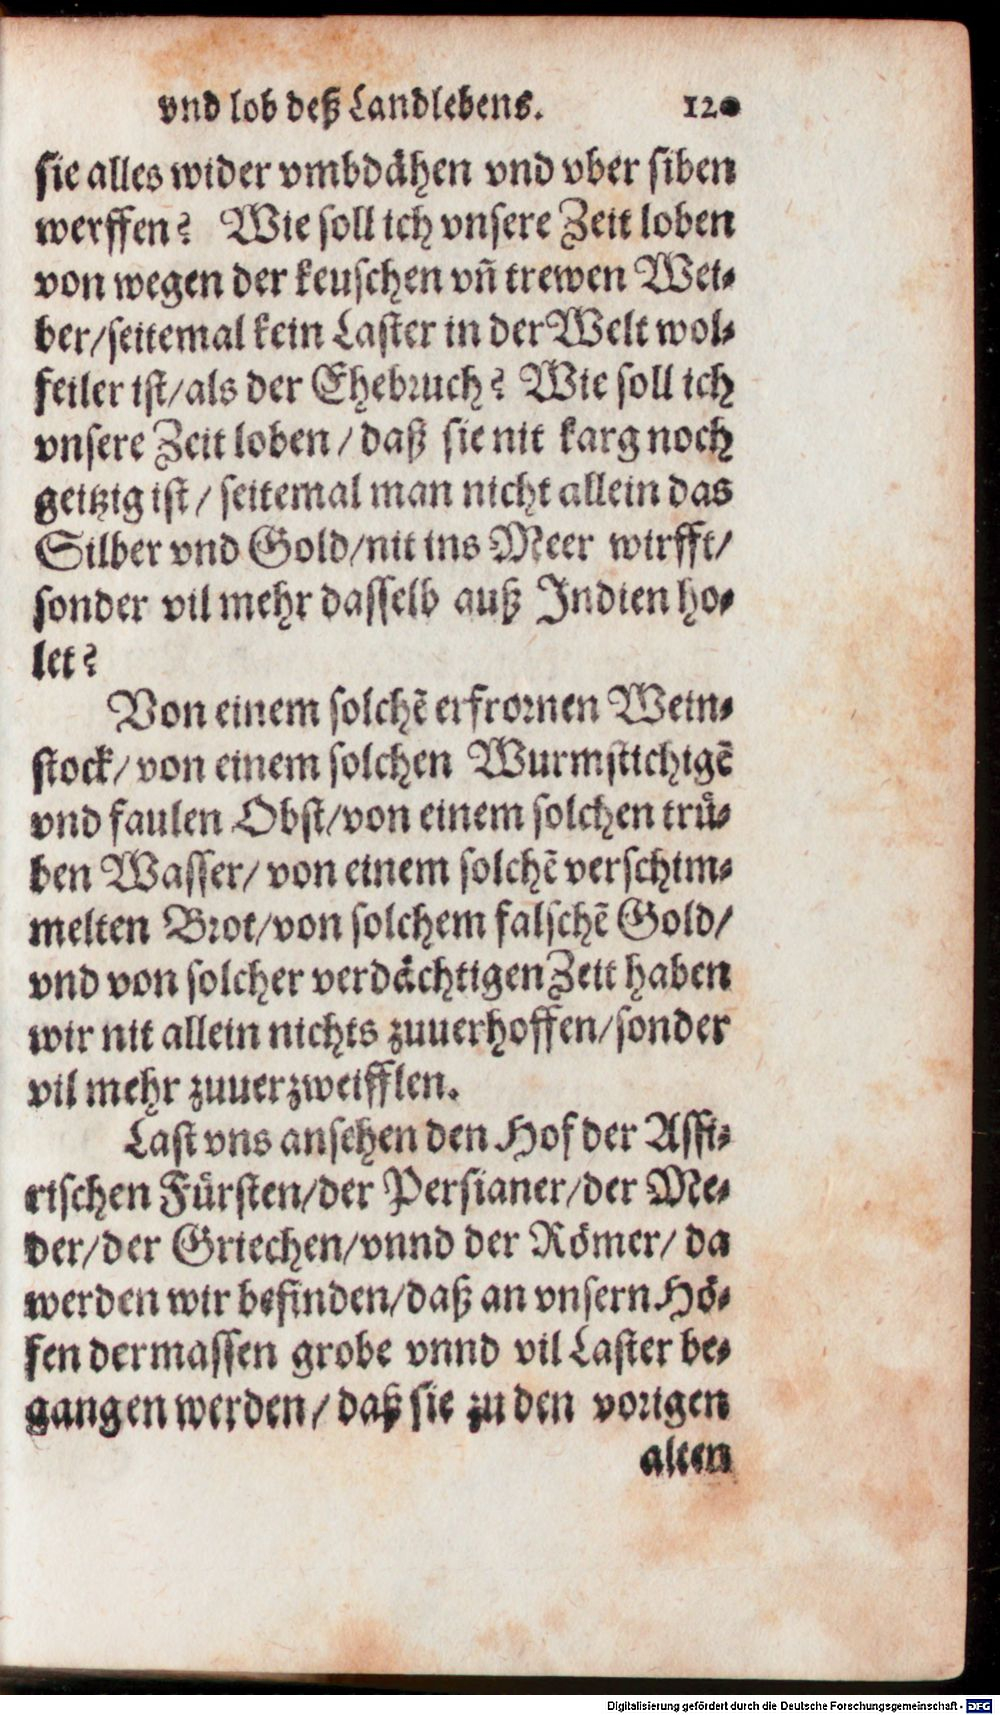 vnd lob deß Landlebens. 120
sie alles wider vmbdåhen vnd vber siben
werffen? Wie soll ich vnsere Zeit loben
von wegen der keuschen vñ trewen Wei-
ber/seitemal kein Laster in der Welt wol-
feiler ist/als der Ehebruch? Wie soll ich
vnsere Zeit loben/ daß sie nit karg noch
geitzig ist/ seitemal man nicht allein das
Silber vnd Gold/nit ins Meer wirfft/
sonder vil mehr dasselb auß Indien ho-
let?
Von einem solchẽ erfrornen Wein-
stock/ von einem solchen Wurmstichigẽ
vnd faulen Obst/von einem solchen trů-
ben Wasser/ von einem solchẽ verschim-
melten Brot/von solchem falschẽ Gold/
vnd von solcher verdåchtigen Zeit haben
wir nit allein nichts zuuerhoffen/sonder
vil mehr zuuerzweifflen.
Last vns ansehen den Hof der Assi-
rischen Fürsten/der Persianer/der Me-
der/der Griechen/vnnd der Römer/ da
werden wir befinden/daß an vnsern Hö-
fen dermassen grobe vnnd vil Laster be-
gangen werden/ daß sie zu den vorigen
alten
Digitalisierung gefördert durch die Deutsche Forschungsgemeinschaft - DFG